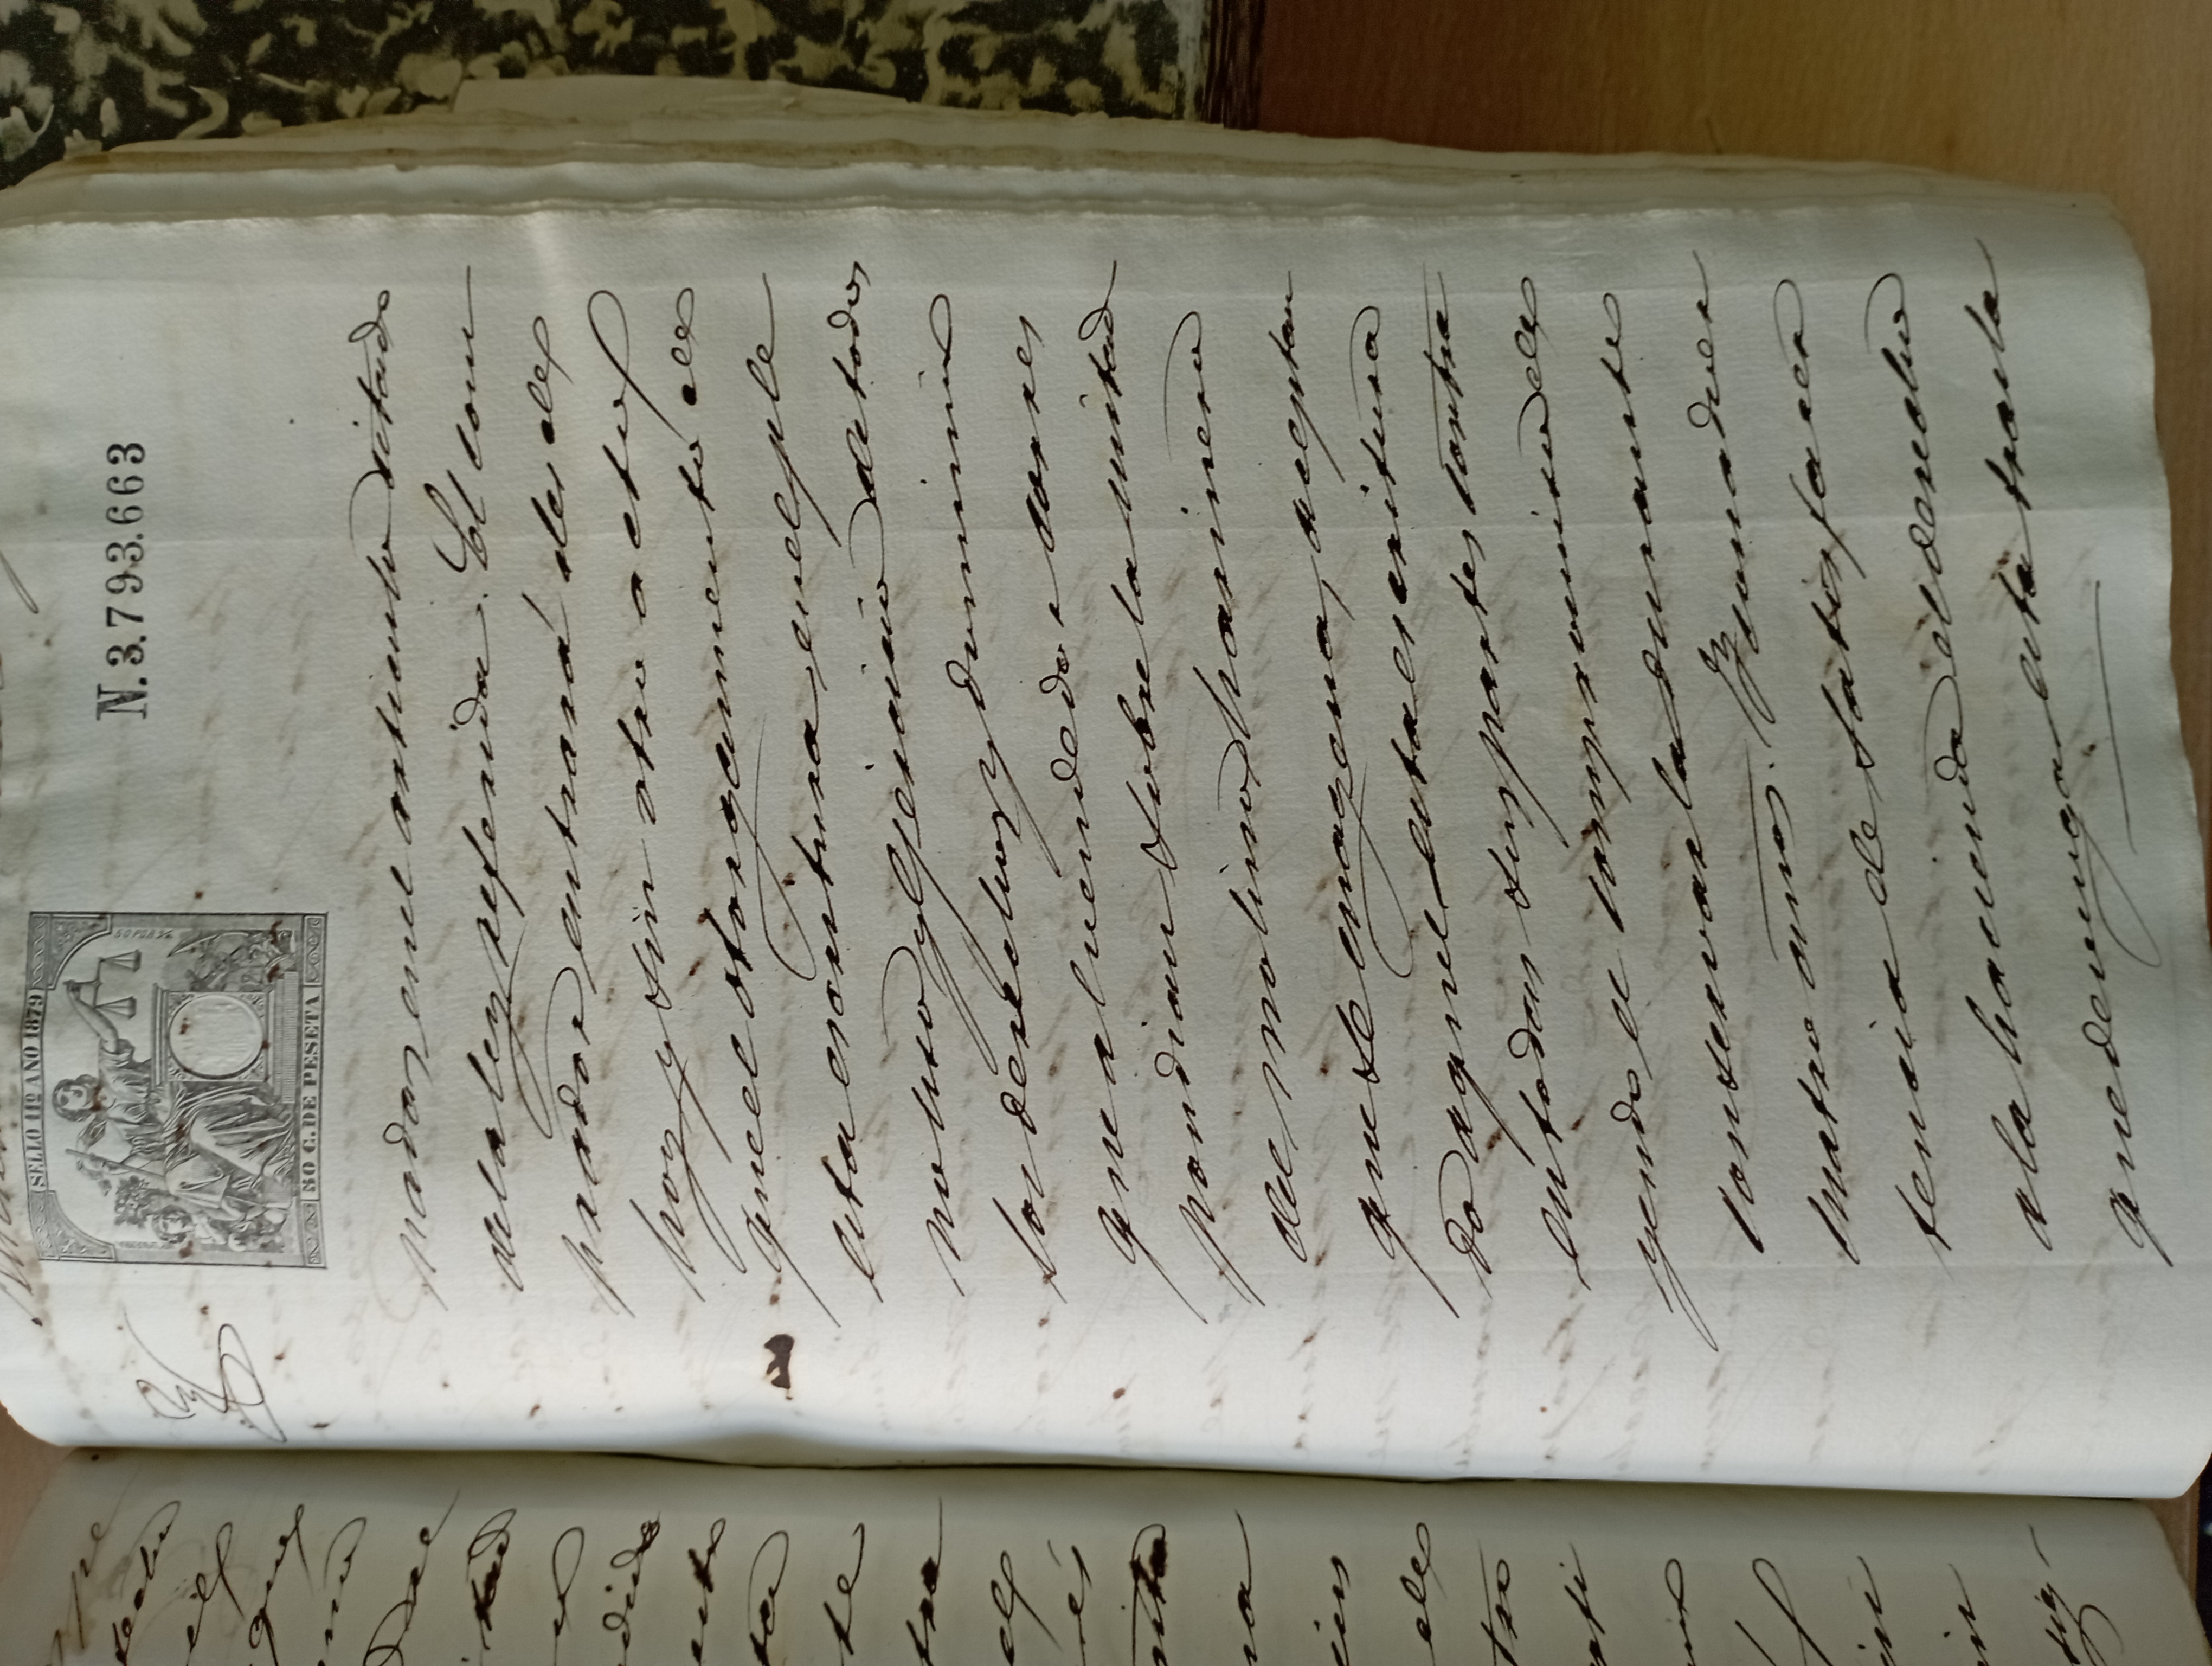 SELLO 11º AÑO 1879
N. 3.793.663
50 C. DE PESETA
nadas en el articulo citado
de la ley referida. El com
prador entrará desde
hoy y sin otro acto
que el otorgamiento de
esta escritura en el ple
no uso y ejercicio de todos
los derechos y dominio
que al vendedor corres
pondian sobre la mitad
del molino harinero
que se enagena, aceptan
do aquel esta escritura
en todas sus partes contra
yendo el compromiso de
conservarla durante
cuatro años. Y con adver
tencia de satisfacer
a la hacienda el derecho
que devenga esta trasla